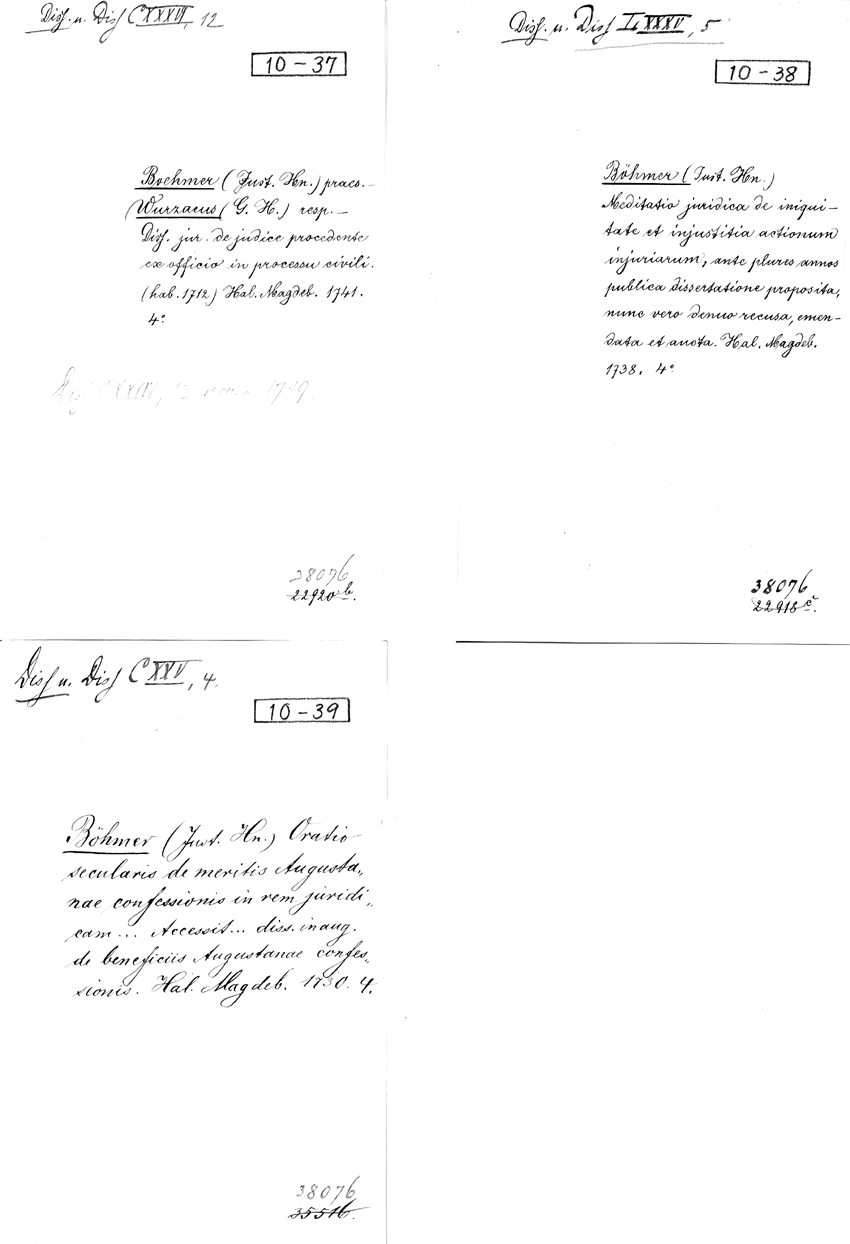 Diss. u. Diss CXXXVI, 12
10-37
Boehmer (Just. Hn.) praes. –
(Wurzacus (G. H.) resp. –
Diss. jur. de judice procedente
ex officio in processu civili.
(hab. 1712) Hal. Magdeb. 1741.
4°
38076
22920 b.
Diss. u. Diss LXXXV, 5
10-38
Böhmer (Just. Hn.)
Meditatio juridica de iniqui-
tate et injustitia actionum
injuriarum, ante plures annos
publica dissertatione proposita,
nunc vero denuo recusa, emen-
data et aucta. Hal. Magdeb.
1738. 4°
38076
22918 c.
Diss u. Diss CXXV, 4.
10-39
Böhmer (Just. Hn.) Oratio
secularis de meritis Augusta„
nae confessionis in rem juridi„
cam... Accessit... diss. inaug.
de beneficiis Augustanae confes„
sionis. Hal. Magdeb. 1730. 4.
38076
35516.